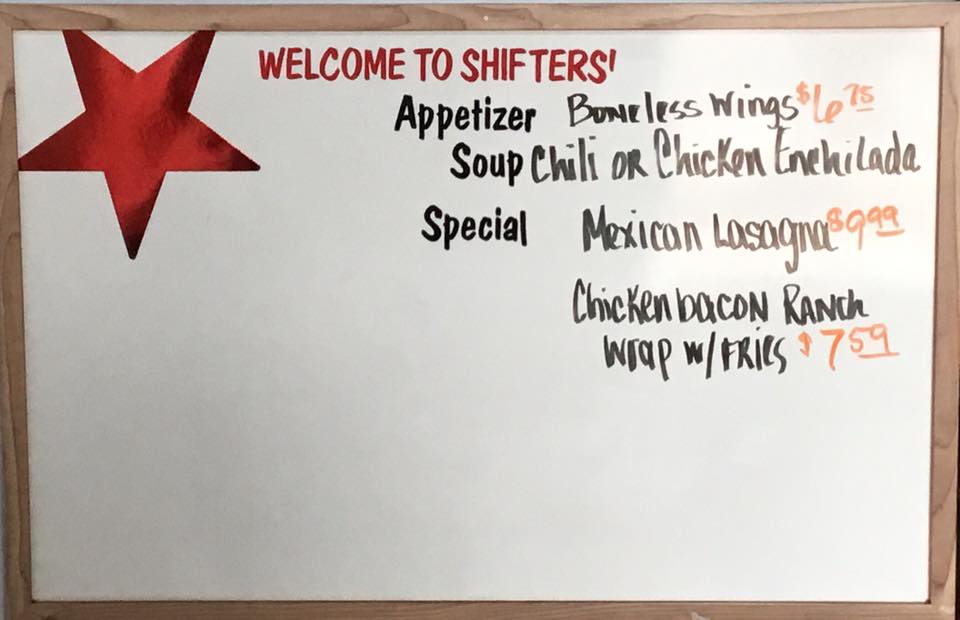 WELCOME TO SHIFTERS!
Appetizer Boneless Wings $6 75
Soup Chili OR Chicken Enchilada
Special Mexican Lasagna $9 99
Chicken bacon Ranch
Wrap w/FRIES $7 59